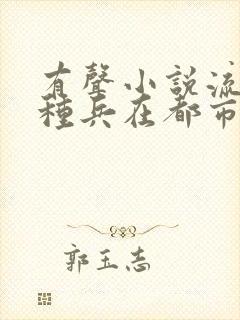 有聲小說流
種兵在都市
郭玉志